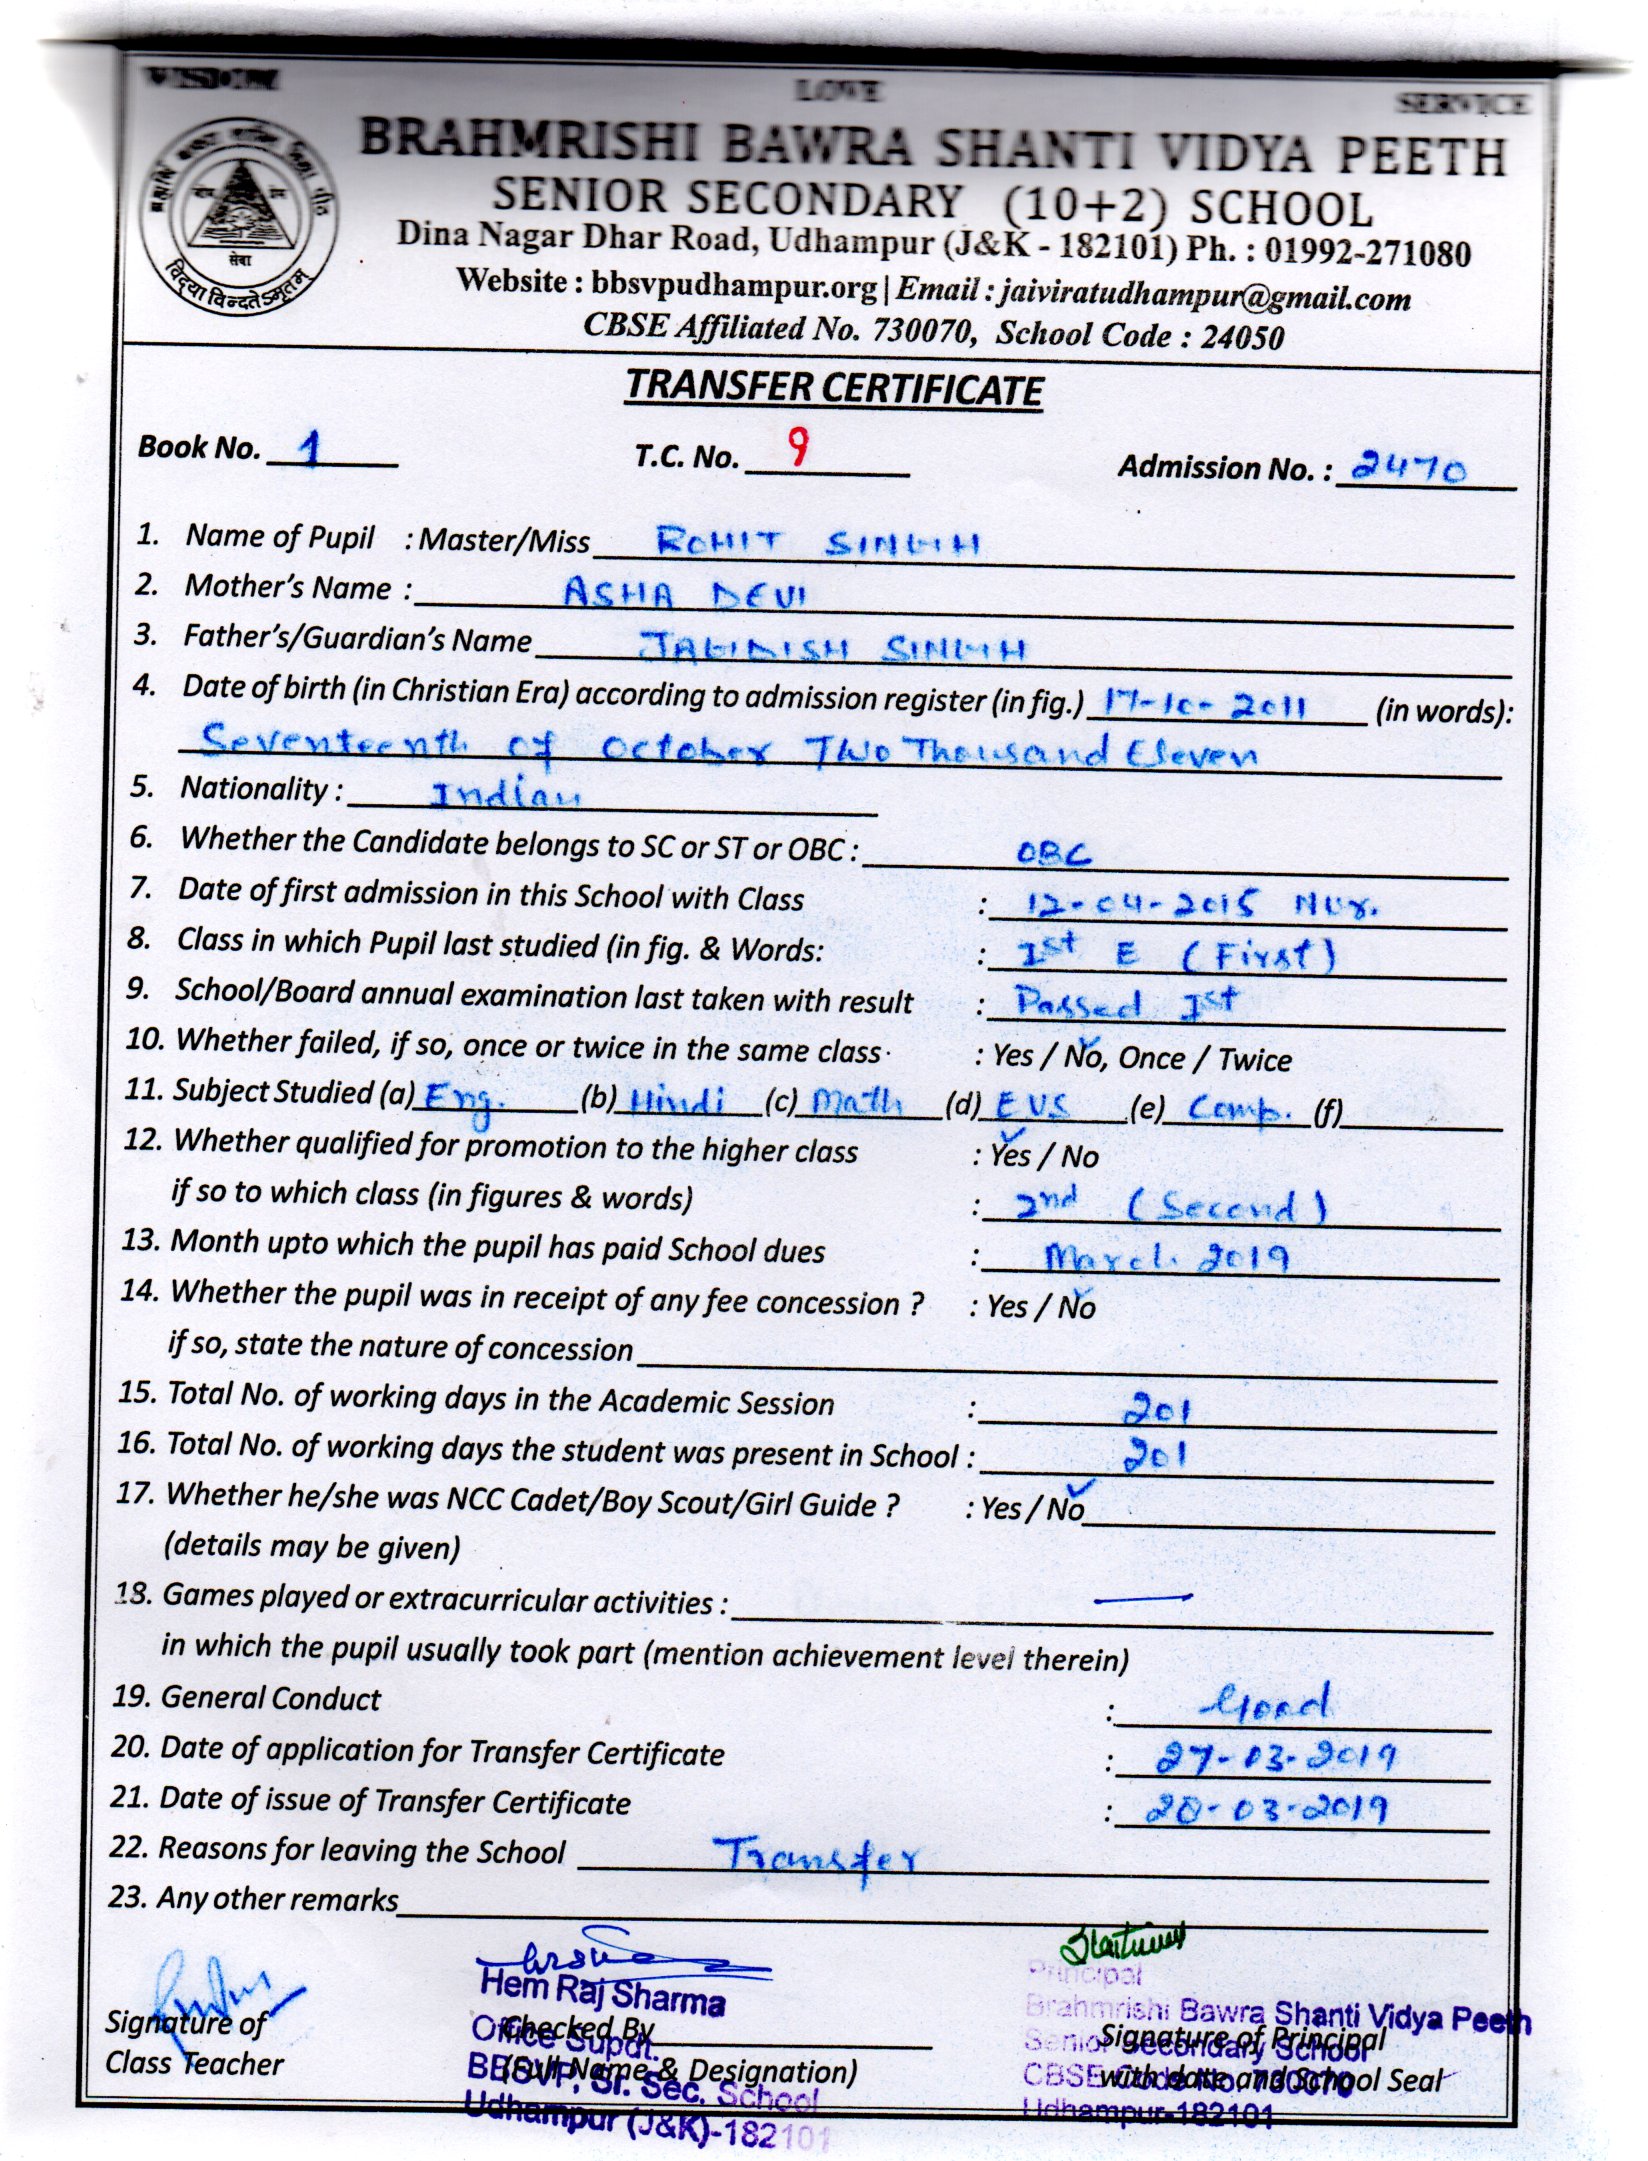 WISDOM LOVE SERVICE
BRAHMRISHI BAWRA SHANTI VIDYA PEETH
SENIOR SECONDARY (10+2) SCHOOL
Dina Nagar Dhar Road, Udhampur (J&K - 182101) Ph. : 01992-271080
Website : bbsvpudhampur.org | Email : jaiviratudhampur@gmail.com
CBSE Affiliated No. 730070, School Code : 24050
सेवा
विद्या विन्दतेऽमृतम्
TRANSFER CERTIFICATE
Book No. 1 T.C. No. 9 Admission No. : 2470
1. Name of Pupil : Master/Miss ROHIT SINGH
2. Mother's Name : ASHA DEVI
3. Father's/Guardian's Name JAGDISH SINGH
4. Date of birth (in Christian Era) according to admission register (in fig.) 17-10-2011 (in words):
Seventeenth of October Two Thousand Eleven
5. Nationality : Indian
6. Whether the Candidate belongs to SC or ST or OBC : OBC
7. Date of first admission in this School with Class : 12-04-2015 Nur.
8. Class in which Pupil last studied (in fig. & Words: : Ist E (First)
9. School/Board annual examination last taken with result : Passed Ist
10. Whether failed, if so, once or twice in the same class : Yes / No, Once / Twice
11. Subject Studied (a) Eng. (b) Hindi (c) Math (d) EVS (e) Comp. (f)
12. Whether qualified for promotion to the higher class : Yes / No
if so to which class (in figures & words) : 2nd (Second)
13. Month upto which the pupil has paid School dues : March 2019
14. Whether the pupil was in receipt of any fee concession ? : Yes / No
if so, state the nature of concession
15. Total No. of working days in the Academic Session : 201
16. Total No. of working days the student was present in School : 201
17. Whether he/she was NCC Cadet/Boy Scout/Girl Guide ? : Yes / No
(details may be given)
18. Games played or extracurricular activities : —
in which the pupil usually took part (mention achievement level therein)
19. General Conduct : Good
20. Date of application for Transfer Certificate : 27-03-2019
21. Date of issue of Transfer Certificate : 28-03-2019
22. Reasons for leaving the School Transfer
23. Any other remarks
Signature of
Class Teacher
Hem Raj Sharma
Office Supdt.
BBSVP, Sr. Sec. School
Udhampur (J&K)-182101
Checked By
(Full Name & Designation)
Principal
Brahmrishi Bawra Shanti Vidya Peeth
Senior Secondary School
CBSE Code No. 730070
Udhampur-182101
Signature of Principal
with date and School Seal